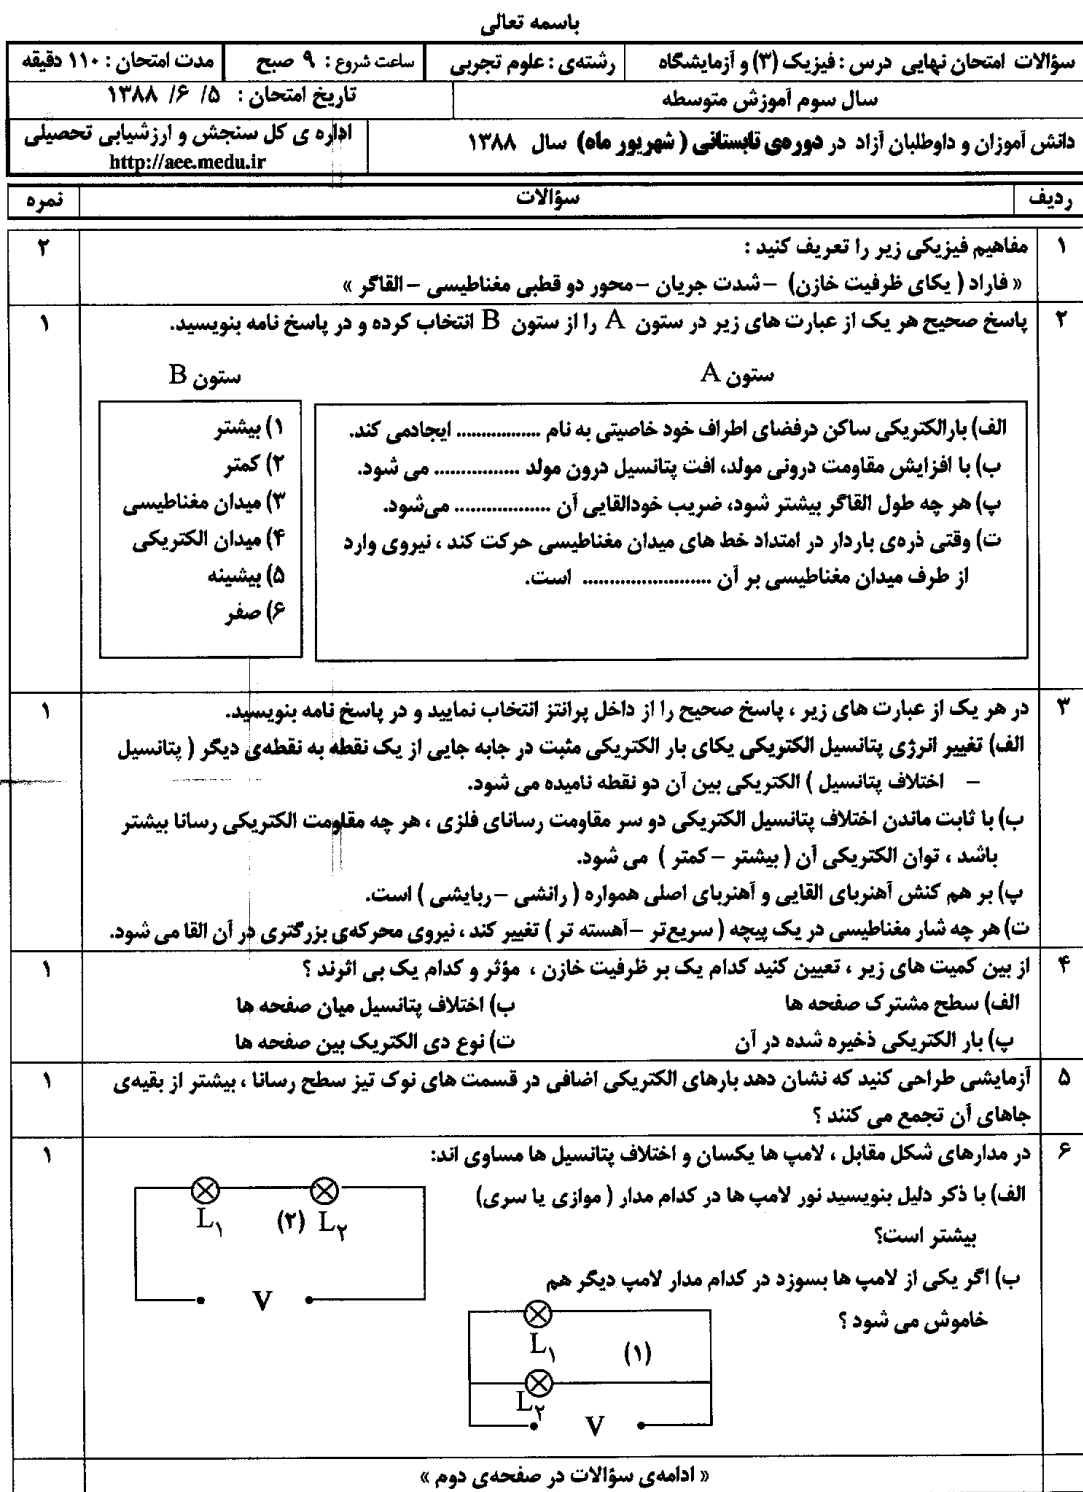 باسمه تعالی
سؤالات امتحان نهایی درس : فیزیک (۳) و آزمایشگاه رشته‌ی : علوم تجربی ساعت شروع : ۹ صبح مدت امتحان : ۱۱۰ دقیقه
سال سوم آموزش متوسطه تاریخ امتحان : ۵ /۶ /۱۳۸۸
دانش آموزان و داوطلبان آزاد در دوره‌ی تابستانی ( شهریور ماه) سال ۱۳۸۸ اداره ی کل سنجش و ارزشیابی تحصیلی
http://aee.medu.ir
ردیف سؤالات نمره
۱ مفاهیم فیزیکی زیر را تعریف کنید : ۲
« فاراد ( یکای ظرفیت خازن) – شدت جریان – محور دو قطبی مغناطیسی – القاگر »
۲ پاسخ صحیح هر یک از عبارت های زیر در ستون A را از ستون B انتخاب کرده و در پاسخ نامه بنویسید. ۱
ستون A ستون B
الف) بارالکتریکی ساکن درفضای اطراف خود خاصیتی به نام ................ ایجادمی کند.
ب) با افزایش مقاومت درونی مولد، افت پتانسیل درون مولد ................ می شود.
پ) هر چه طول القاگر بیشتر شود، ضریب خودالقایی آن .................. می‌شود.
ت) وقتی ذره‌ی باردار در امتداد خط های میدان مغناطیسی حرکت کند ، نیروی وارد
از طرف میدان مغناطیسی بر آن ........................ است.
۱) بیشتر
۲) کمتر
۳) میدان مغناطیسی
۴) میدان الکتریکی
۵) بیشینه
۶) صفر
۳ در هر یک از عبارت های زیر ، پاسخ صحیح را از داخل پرانتز انتخاب نمایید و در پاسخ نامه بنویسید. ۱
الف) تغییر انرژی پتانسیل الکتریکی یکای بار الکتریکی مثبت در جابه جایی از یک نقطه به نقطه‌ی دیگر ( پتانسیل
– اختلاف پتانسیل ) الکتریکی بین آن دو نقطه نامیده می شود.
ب) با ثابت ماندن اختلاف پتانسیل الکتریکی دو سر مقاومت رسانای فلزی ، هر چه مقاومت الکتریکی رسانا بیشتر
باشد ، توان الکتریکی آن ( بیشتر – کمتر ) می شود.
پ) بر هم کنش آهنربای القایی و آهنربای اصلی همواره ( رانشی – ربایشی ) است.
ت) هر چه شار مغناطیسی در یک پیچه ( سریع‌تر – آهسته تر ) تغییر کند ، نیروی محرکه‌ی بزرگتری در آن القا می شود.
۴ از بین کمیت های زیر ، تعیین کنید کدام یک بر ظرفیت خازن ، مؤثر و کدام یک بی اثرند ؟ ۱
الف) سطح مشترک صفحه ها ب) اختلاف پتانسیل میان صفحه ها
پ) بار الکتریکی ذخیره شده در آن ت) نوع دی الکتریک بین صفحه ها
۵ آزمایشی طراحی کنید که نشان دهد بارهای الکتریکی اضافی در قسمت های نوک تیز سطح رسانا ، بیشتر از بقیه‌ی ۱
جاهای آن تجمع می کنند ؟
۶ در مدارهای شکل مقابل ، لامپ ها یکسان و اختلاف پتانسیل ها مساوی اند: ۱
الف) با ذکر دلیل بنویسید نور لامپ ها در کدام مدار ( موازی یا سری)
بیشتر است؟
ب) اگر یکی از لامپ ها بسوزد در کدام مدار لامپ دیگر هم
خاموش می شود ؟
L۱ (۲) L۲
V
L۱ (۱)
L۲
V
« ادامه‌ی سؤالات در صفحه‌ی دوم »